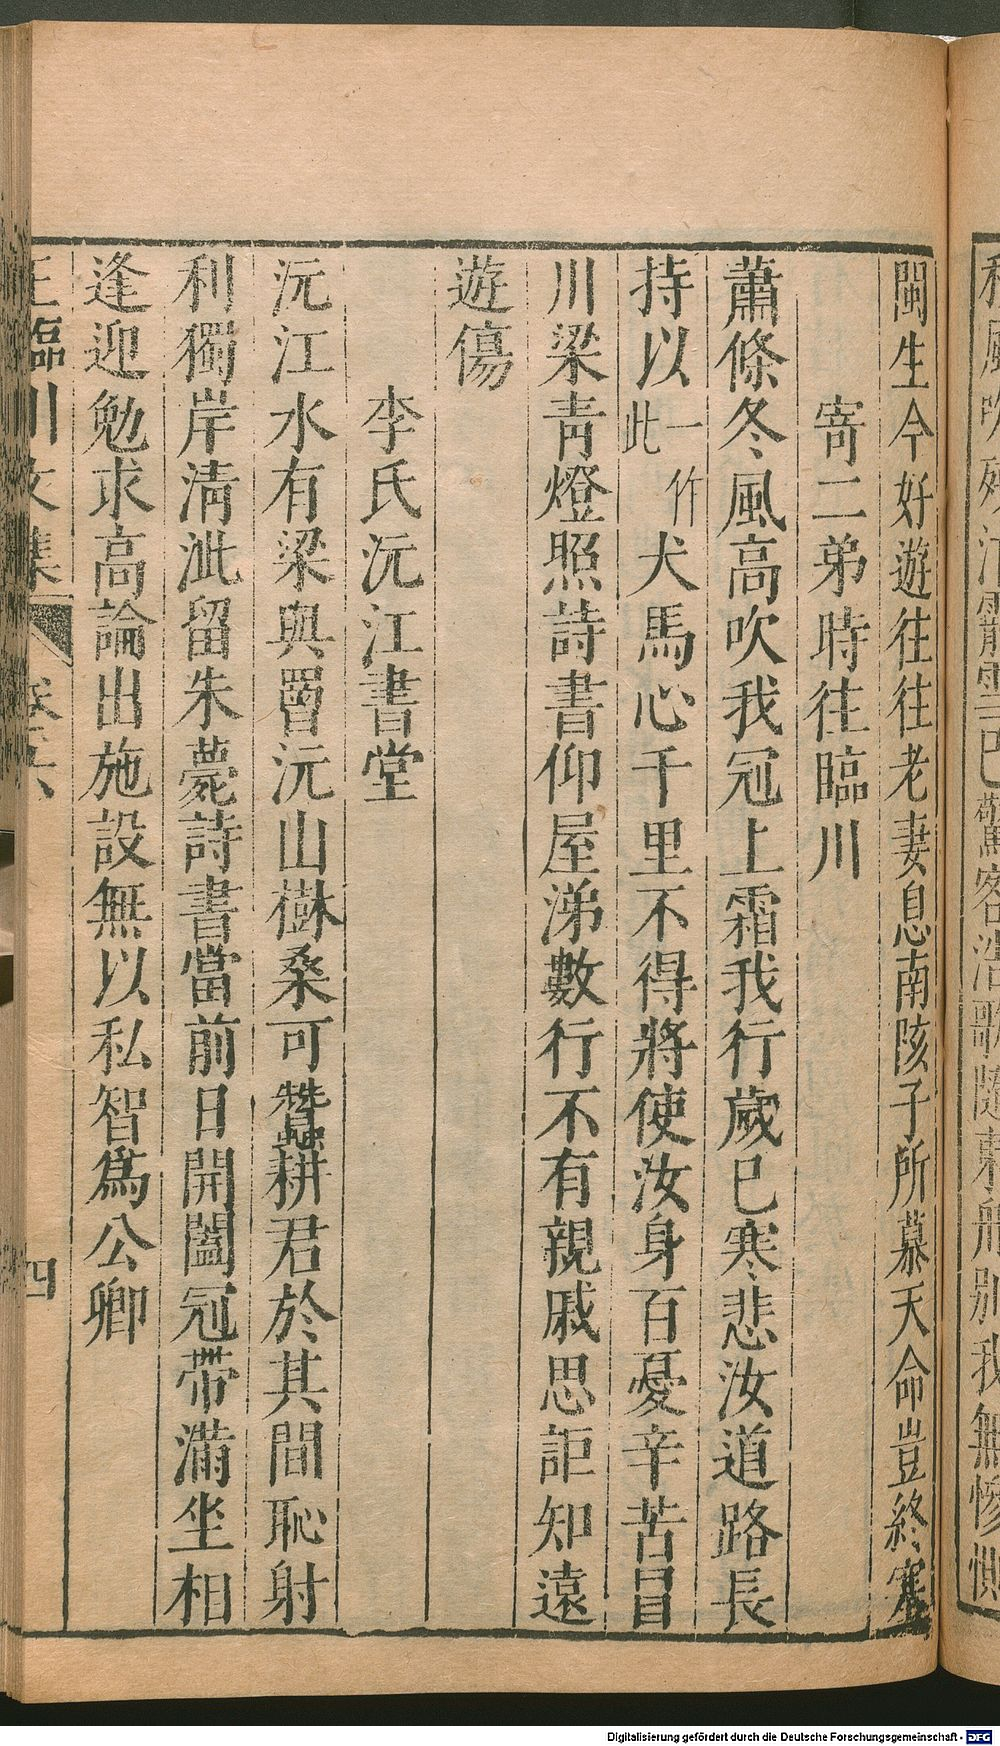 閩生今好遊往往老妻息南陔子所慕天命豈終塞
寄二弟時往臨川
蕭條冬風高吹我冠上霜我行歲已寒悲汝道路長
持以一作此犬馬心千里不得將使汝身百憂辛苦冒
川梁靑燈照詩書仰屋涕數行不有親戚思詎知遠
遊傷
李氏沅江書堂
沅江水有梁與罾沅山樹桑可蠶耕君於其間恥射
利獨岸淸泚留朱甍詩書當前日開闔冠帶滿坐相
逢迎勉求高論出施設無以私智爲公卿
王臨川文集 卷六 四
Digitalisierung gefördert durch die Deutsche Forschungsgemeinschaft - DFG